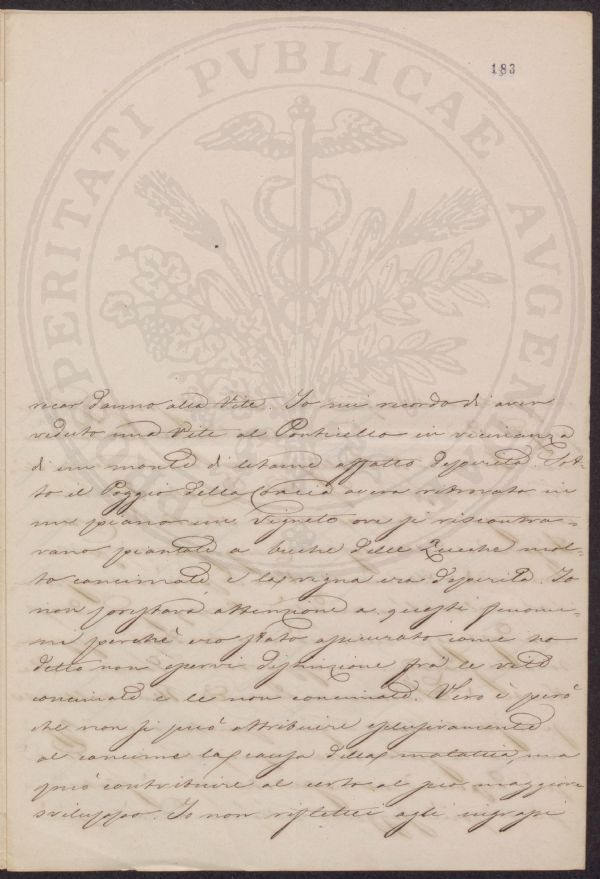 183
PROSPERITATI PVBLICAE AVGENDAE
recar danno alla Vite. Io mi ricordo di aver
veduto una Vite al Ponticello in vicinanza
di un monte di letame affatto deperita. Sot-
to il Poggio della aveva ritrovato in
un piano un Vigneto ove si riscontra-
vano piantate a buche delle Zucche mol-
to concimate e la vigna era deperita. Io
non prestava attenzione a questi fenome-
ni perchè ero stato assicurato come ho
detto non esservi distinzione frà le viti
concimate e le non concimate. Vero è però
che non si può attribuire esclusivamente
al concime la causa della malattia, ma
può contribuire al certo al più maggiore
sviluppo. Io non riflettei agli ingrassi